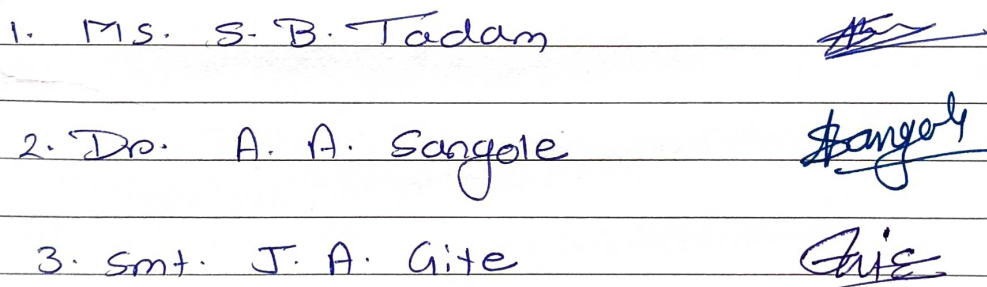 1. Ms. S. B. Tadam
2. Dr. A. A. Sangole Sangole
3. Smt. J. A. Gite Gite